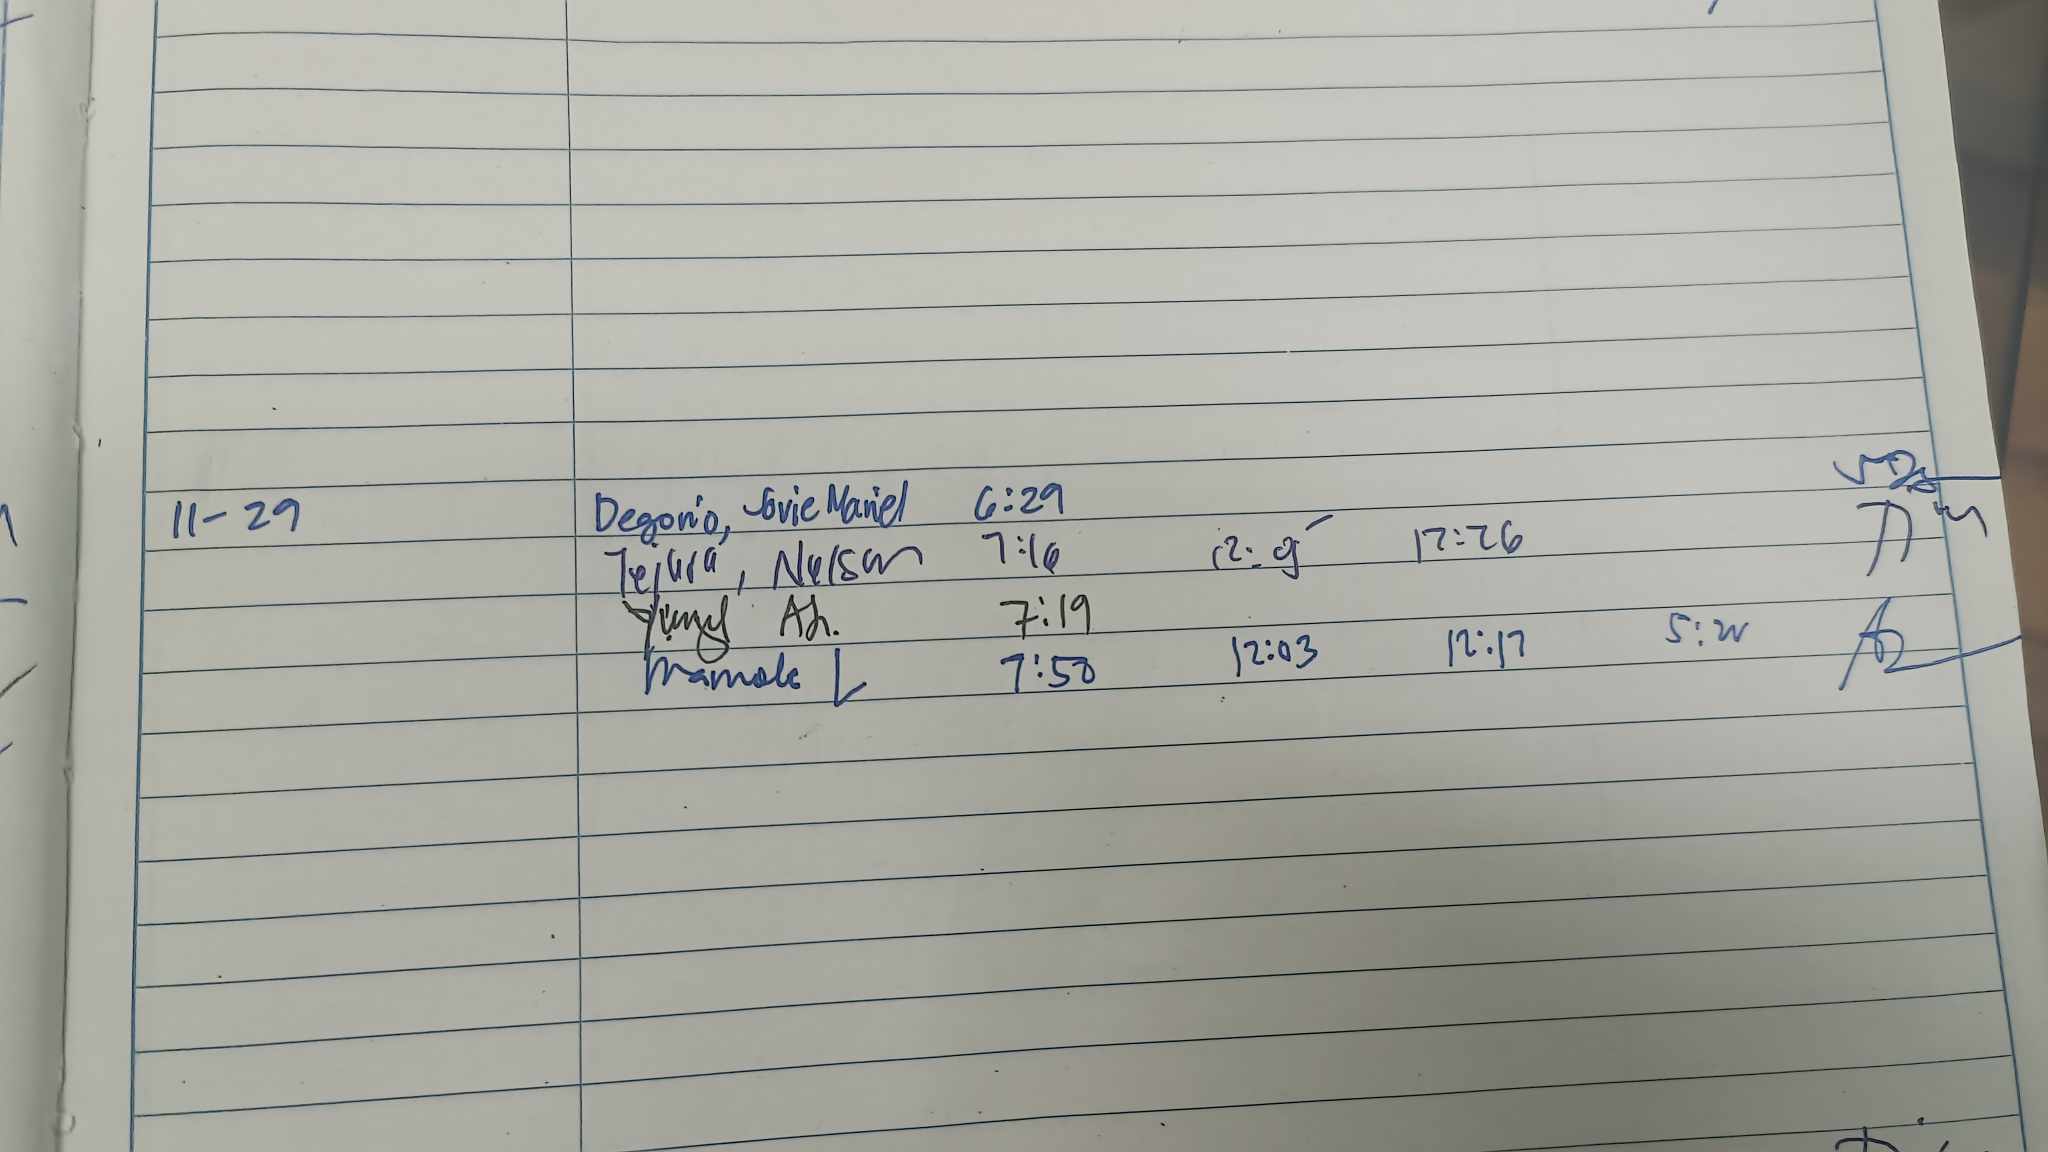 11-29 Degorio, Jovie Mariel 6:29
Tejura, Nelson 7:16 12: 12:26
7:19
Mamole L 7:50 12:03 12:17 5:20